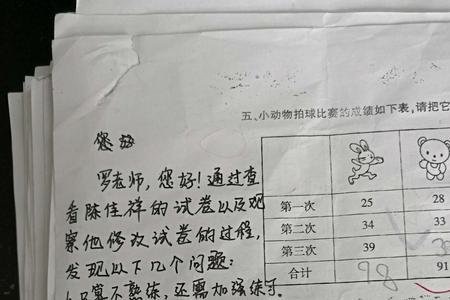 五、小动物拍球比赛的成绩如下表,请把它
您好
罗老师,您好!通过查
看陈佳祥的试卷以及观
察他修改试卷的过程,
发现以下几个问题:
1.口算不熟练,还需加强练习。
第一次 25 28
第二次 34 33
第三次 39
合计 98 91